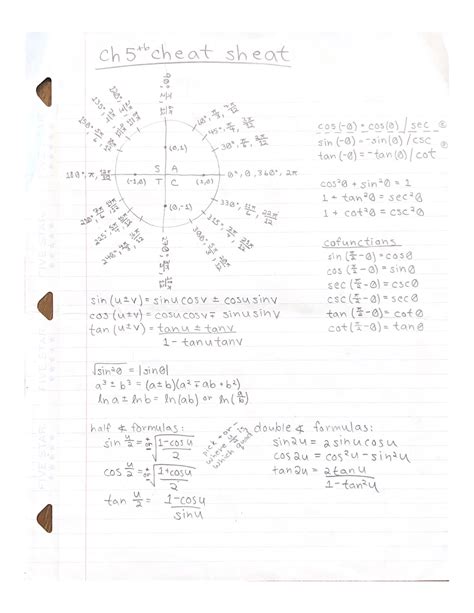 ch 5 cheat sheat
90°, π/2
120°
60°, π/3
45°, π/4
30°, π/6
(0,1)
S A
T C
180°, π, 12π/12
(-1,0) (1,0)
0°, 0, 360°, 2π
(0,-1)
330°
315°
300°
270°
240°
225°
210°
cos(-θ) = cos(θ) / sec
sin(-θ) = -sin(θ) / csc
tan(-θ) = -tan(θ) / cot
cos²θ + sin²θ = 1
1 + tan²θ = sec²θ
1 + cot²θ = csc²θ
cofunctions
sin(π/2-θ) = cosθ
cos(π/2-θ) = sinθ
sec(π/2-θ) = cscθ
csc(π/2-θ) = secθ
tan(π/2-θ) = cotθ
cot(π/2-θ) = tanθ
sin(u±v) = sinucosv ± cosusinv
cos(u±v) = cosucosv ∓ sinusinv
tan(u±v) = tanu ± tanv
1 - tanutanv
√sin²θ = |sinθ|
a³ ± b³ = (a±b)(a² ∓ab + b²)
lna ± lnb = ln(ab) or ln(a/b)
half ∡ formulas:
sin u/2 = + or - √(1-cosu / 2)
cos u/2 = + or - √(1+cosu / 2)
tan u/2 = 1-cosu / sinu
pick + or -
where u/2 is
which quad
double ∡ formulas:
sin2u = 2sinucosu
cos2u = cos²u - sin²u
tan2u = 2tanu
1-tan²u
FIVE STAR